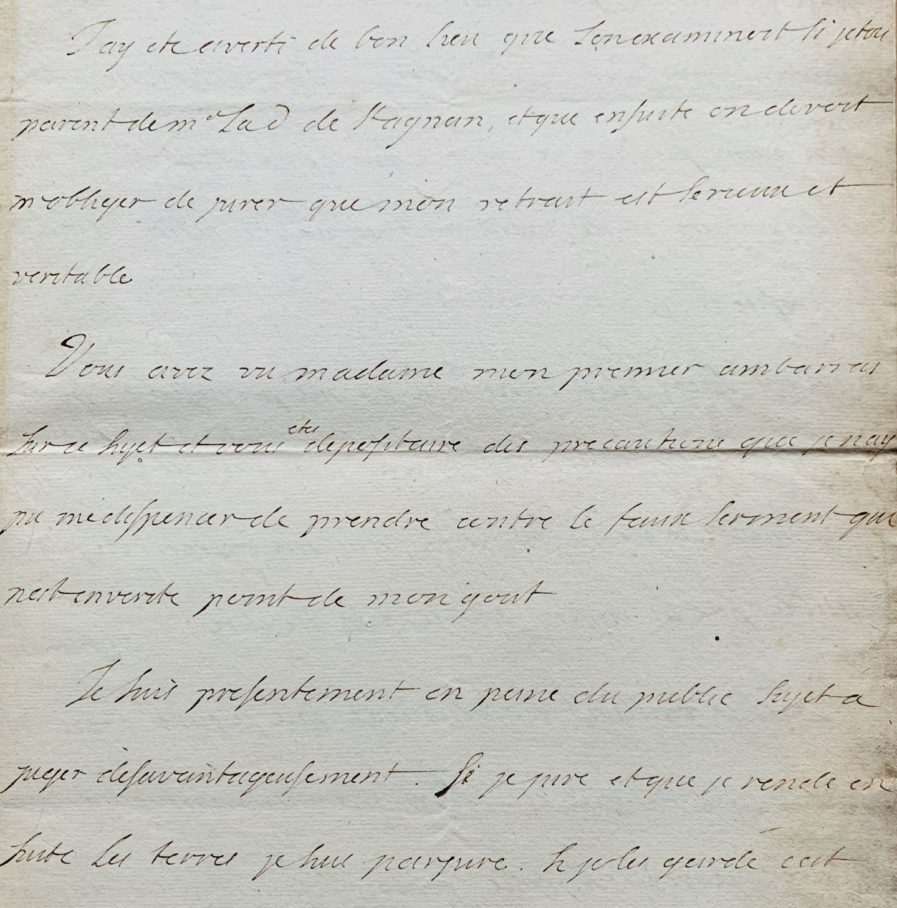 J'ay ete averti de bon lieu que l'on examineroit si jetois
parent de md La D de Kagnan, et que ensuite on devoit
m'obliger de jurer que mon retrait est serieux et
veritable
Vous avez vu madame mon premier ambarras
sur ce sujet et vous etes depositaire des precautions que je nay
pu me dispencer de prendre contre le faux serment qui
nest en verite point de mon gout
Je suis presentement en peine du public sujet a
juger desavantageusement. Si je jure et que je rende en
suite les terres je suis parjure. si je les garde cest